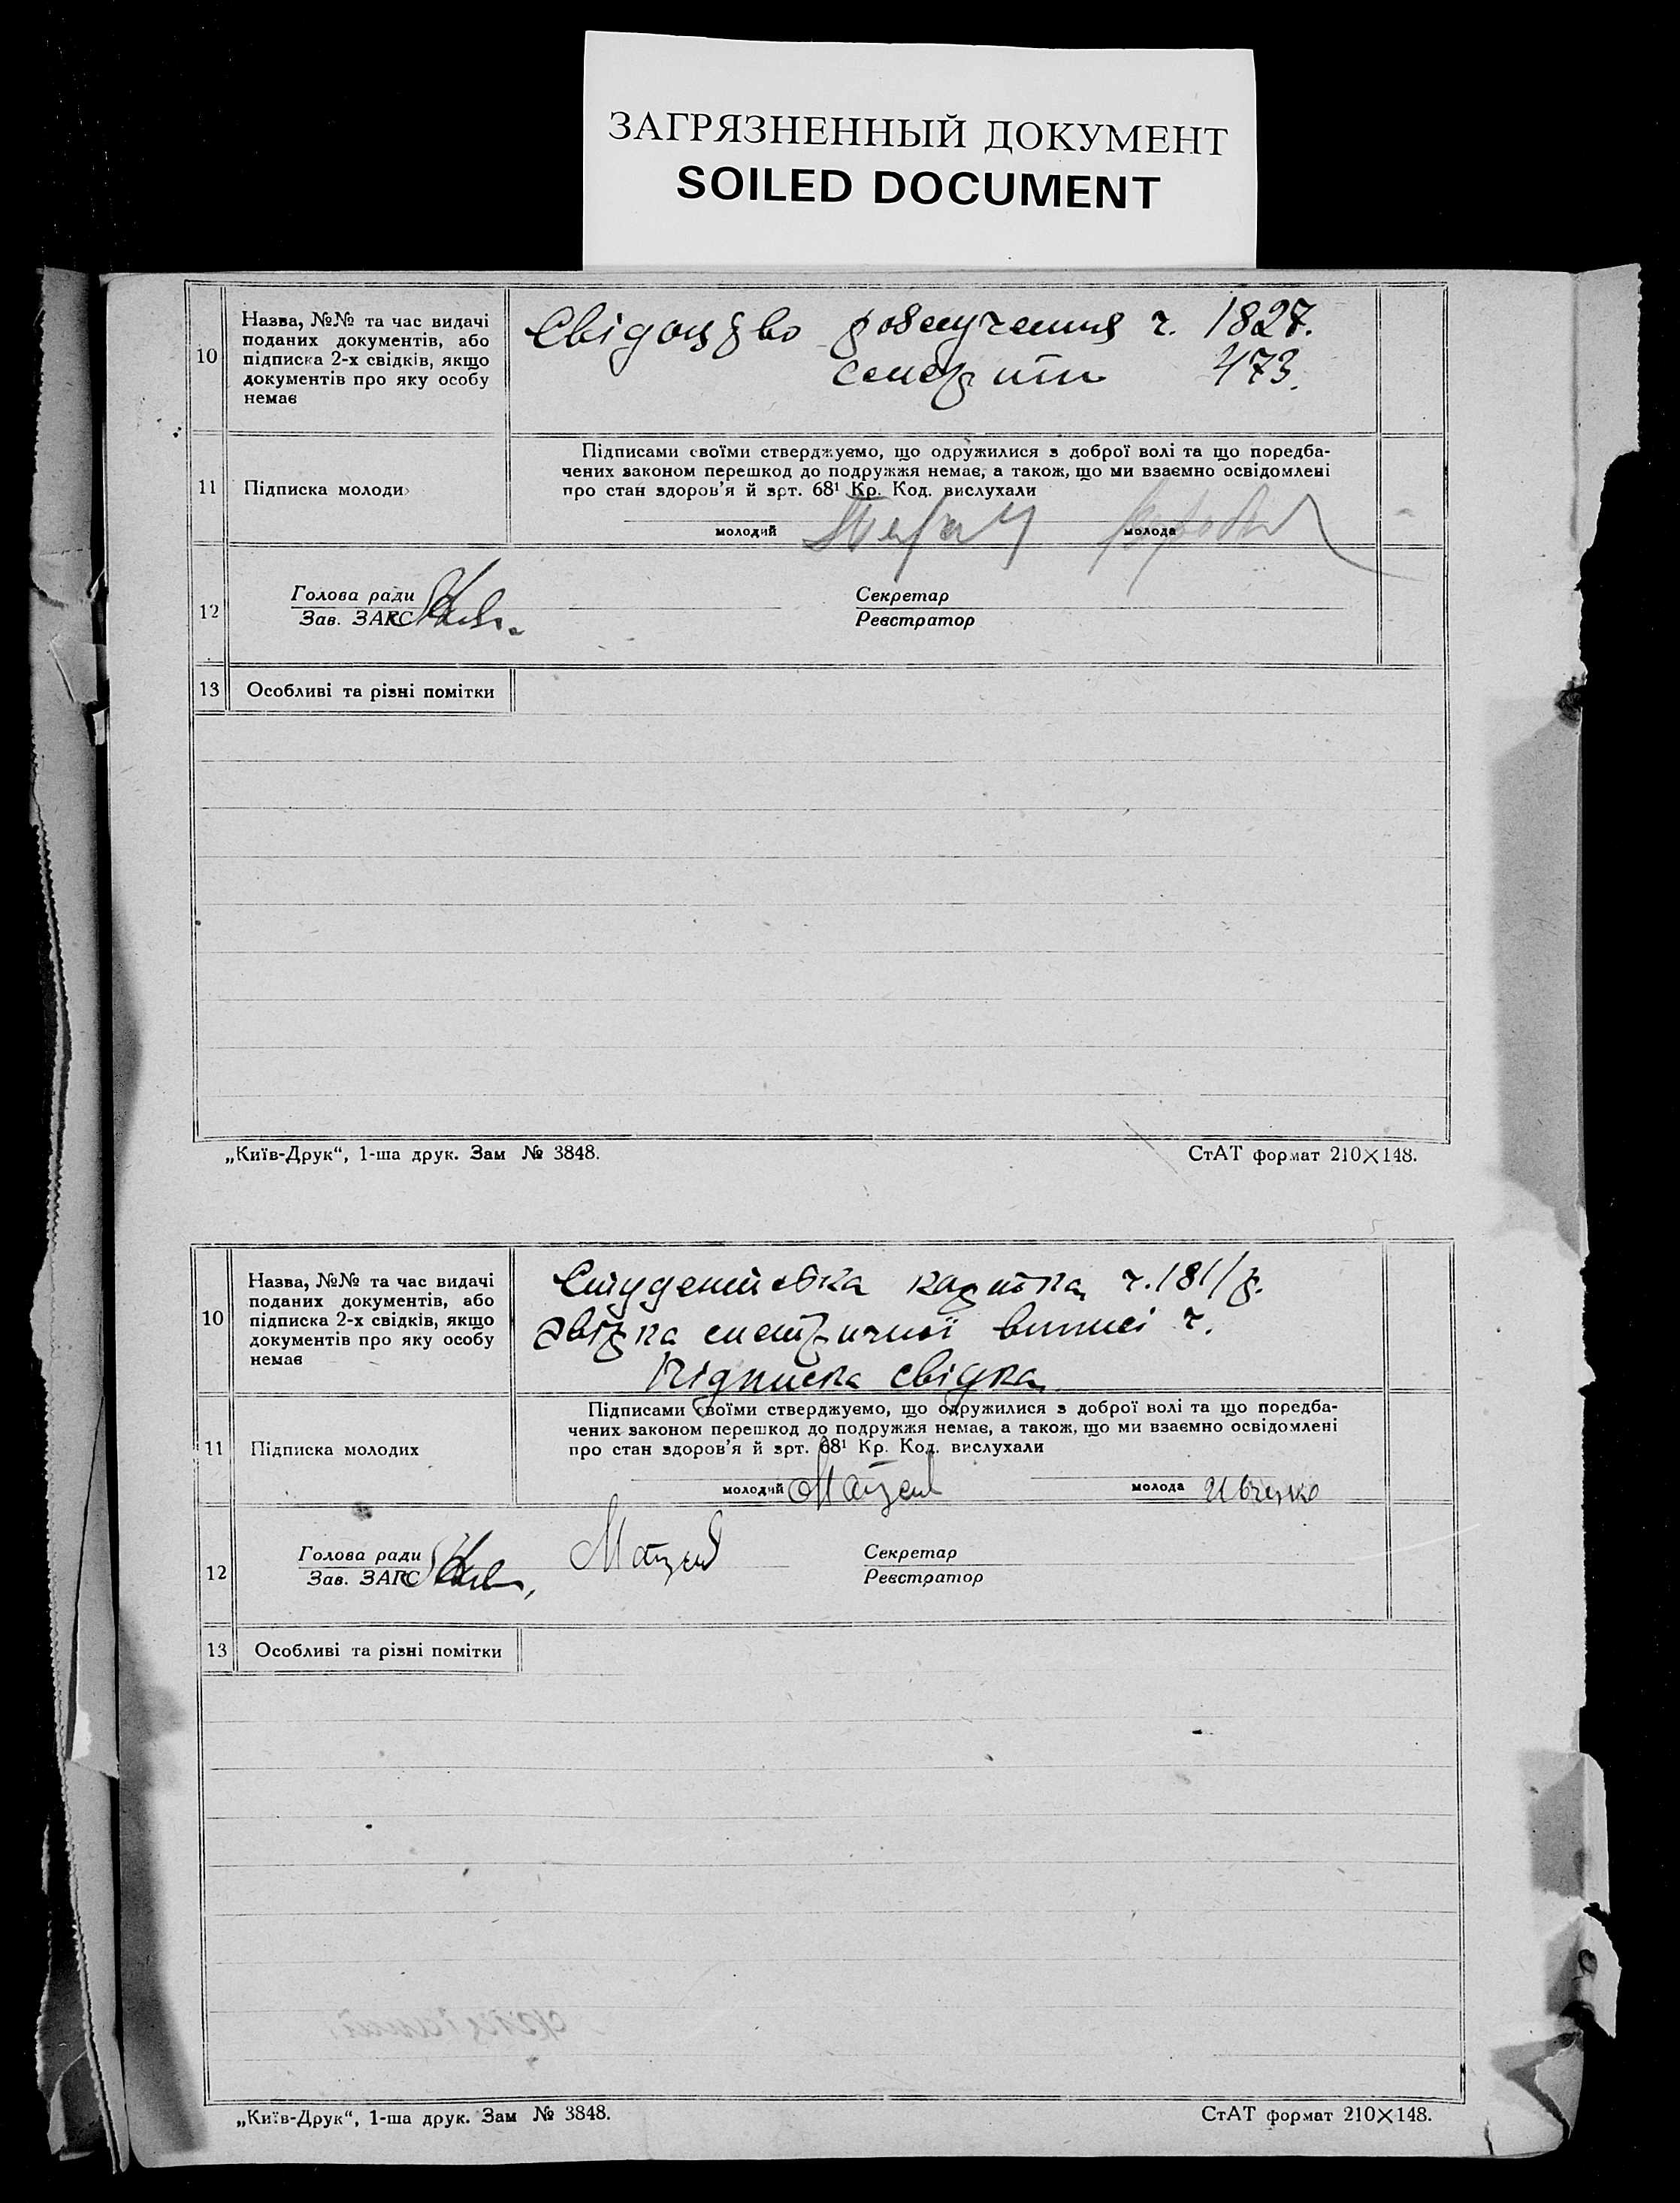 ЗАГРЯЗНЕННЫЙ ДОКУМЕНТ
SOILED DOCUMENT
10
Назва, №№ та час видачі
поданих документів, або
підписка 2-х свідків, якщо
документів про яку особу
немає
ч. 1827.
473.
11
Підписка молоди
Підписами своїми стверджуємо, що одружилися з доброї волі та що поредба-
чених законом перешкод до подружжя немає, а також, що ми взаємно освідомлені
про стан здоров'я й зрт. 68¹ Кр. Код. вислухали
молодий
молода
12
Голова ради
Зав. ЗАГС
Секретар
Реєстратор
13
Особливі та різні помітки
„Київ-Друк“, 1-ша друк. Зам № 3848.
СтАТ формат 210×148.
10
Назва, №№ та час видачі
поданих документів, або
підписка 2-х свідків, якщо
документів про яку особу
немає
Студентська ч. 181/
виписі ч.
Підписка свідка
11
Підписка молодих
Підписами своїми стверджуємо, що одружилися з доброї волі та що поредба-
чених законом перешкод до подружжя немає, а також, що ми взаємно освідомлені
про стан здоров'я й зрт. 68¹ Кр. Код. вислухали
молодий
молода
12
Голова ради
Зав. ЗАГС
Секретар
Реєстратор
13
Особливі та різні помітки
„Київ-Друк“, 1-ша друк. Зам № 3848.
СтАТ формат 210×148.